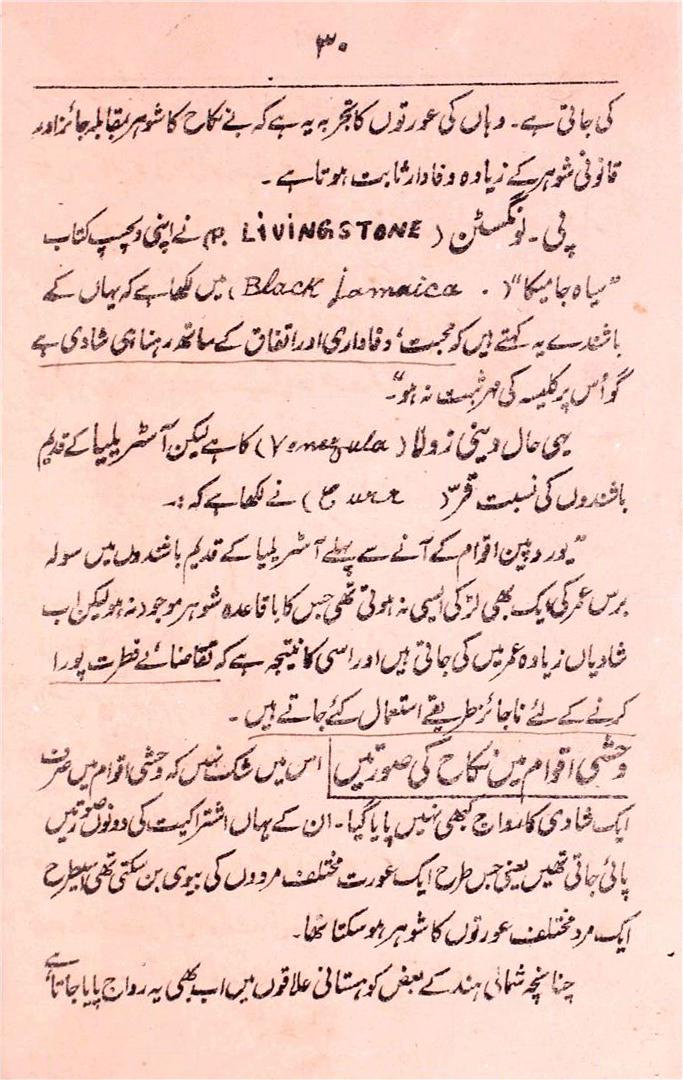 ۳۰
کی جاتی ہے۔ وہاں کی عورتوں کا تجربہ یہ ہے کہ بے نکاح کا شوہر بمقابلہ جائز اور
قانونی شوہر کے زیادہ وفادار ثابت ہوتا ہے۔
پی۔ لونگسٹن (P. LIVINGSTONE نے اپنی دلچسپ کتاب
"سیاہ جامیکا" (Black Jamaica.) میں لکھا ہے کہ یہاں کے
باشندے یہ کہتے ہیں کہ محبت، وفاداری اور اتفاق کے ساتھ رہنا ہی شادی ہے
گو اُس پر کلیسہ کی مہر ثبت نہ ہو"۔
یہی حال وینی زولا (Venezula) کا ہے لیکن آسٹریلیا کے قدیم
باشندوں کی نسبت ( urr ) نے لکھا ہے کہ :۔
"یوروپین اقوام کے آنے سے پہلے آسٹریلیا کے قدیم باشندوں میں سولہ
برس عمر کی ایک بھی لڑکی ایسی نہ ہوتی تھی جس کا باقاعدہ شوہر موجود نہ ہو لیکن اب
شادیاں زیادہ عمر میں کی جاتی ہیں اور اسی کا نتیجہ ہے کہ تقاضائے فطرت پورا
کرنے کے لئے ناجائز طریقے استعمال کئے جاتے ہیں۔
وحشی اقوام میں نکاح کی صورتیں اس میں شک نہیں کہ وحشی اقوام میں صرف
ایک شادی کا رواج کبھی نہیں پایا گیا۔ ان کے ہاں اشتراکیت کی دونوں صورتیں
پائی جاتی تھیں یعنی جس طرح ایک عورت مختلف مردوں کی بیوی بن سکتی تھی اسیطرح
ایک مرد مختلف عورتوں کا شوہر ہو سکتا تھا۔
چنانچہ شمالی ہند کے بعض کوہستانی علاقوں میں اب بھی یہ رواج پایا جاتا ہے